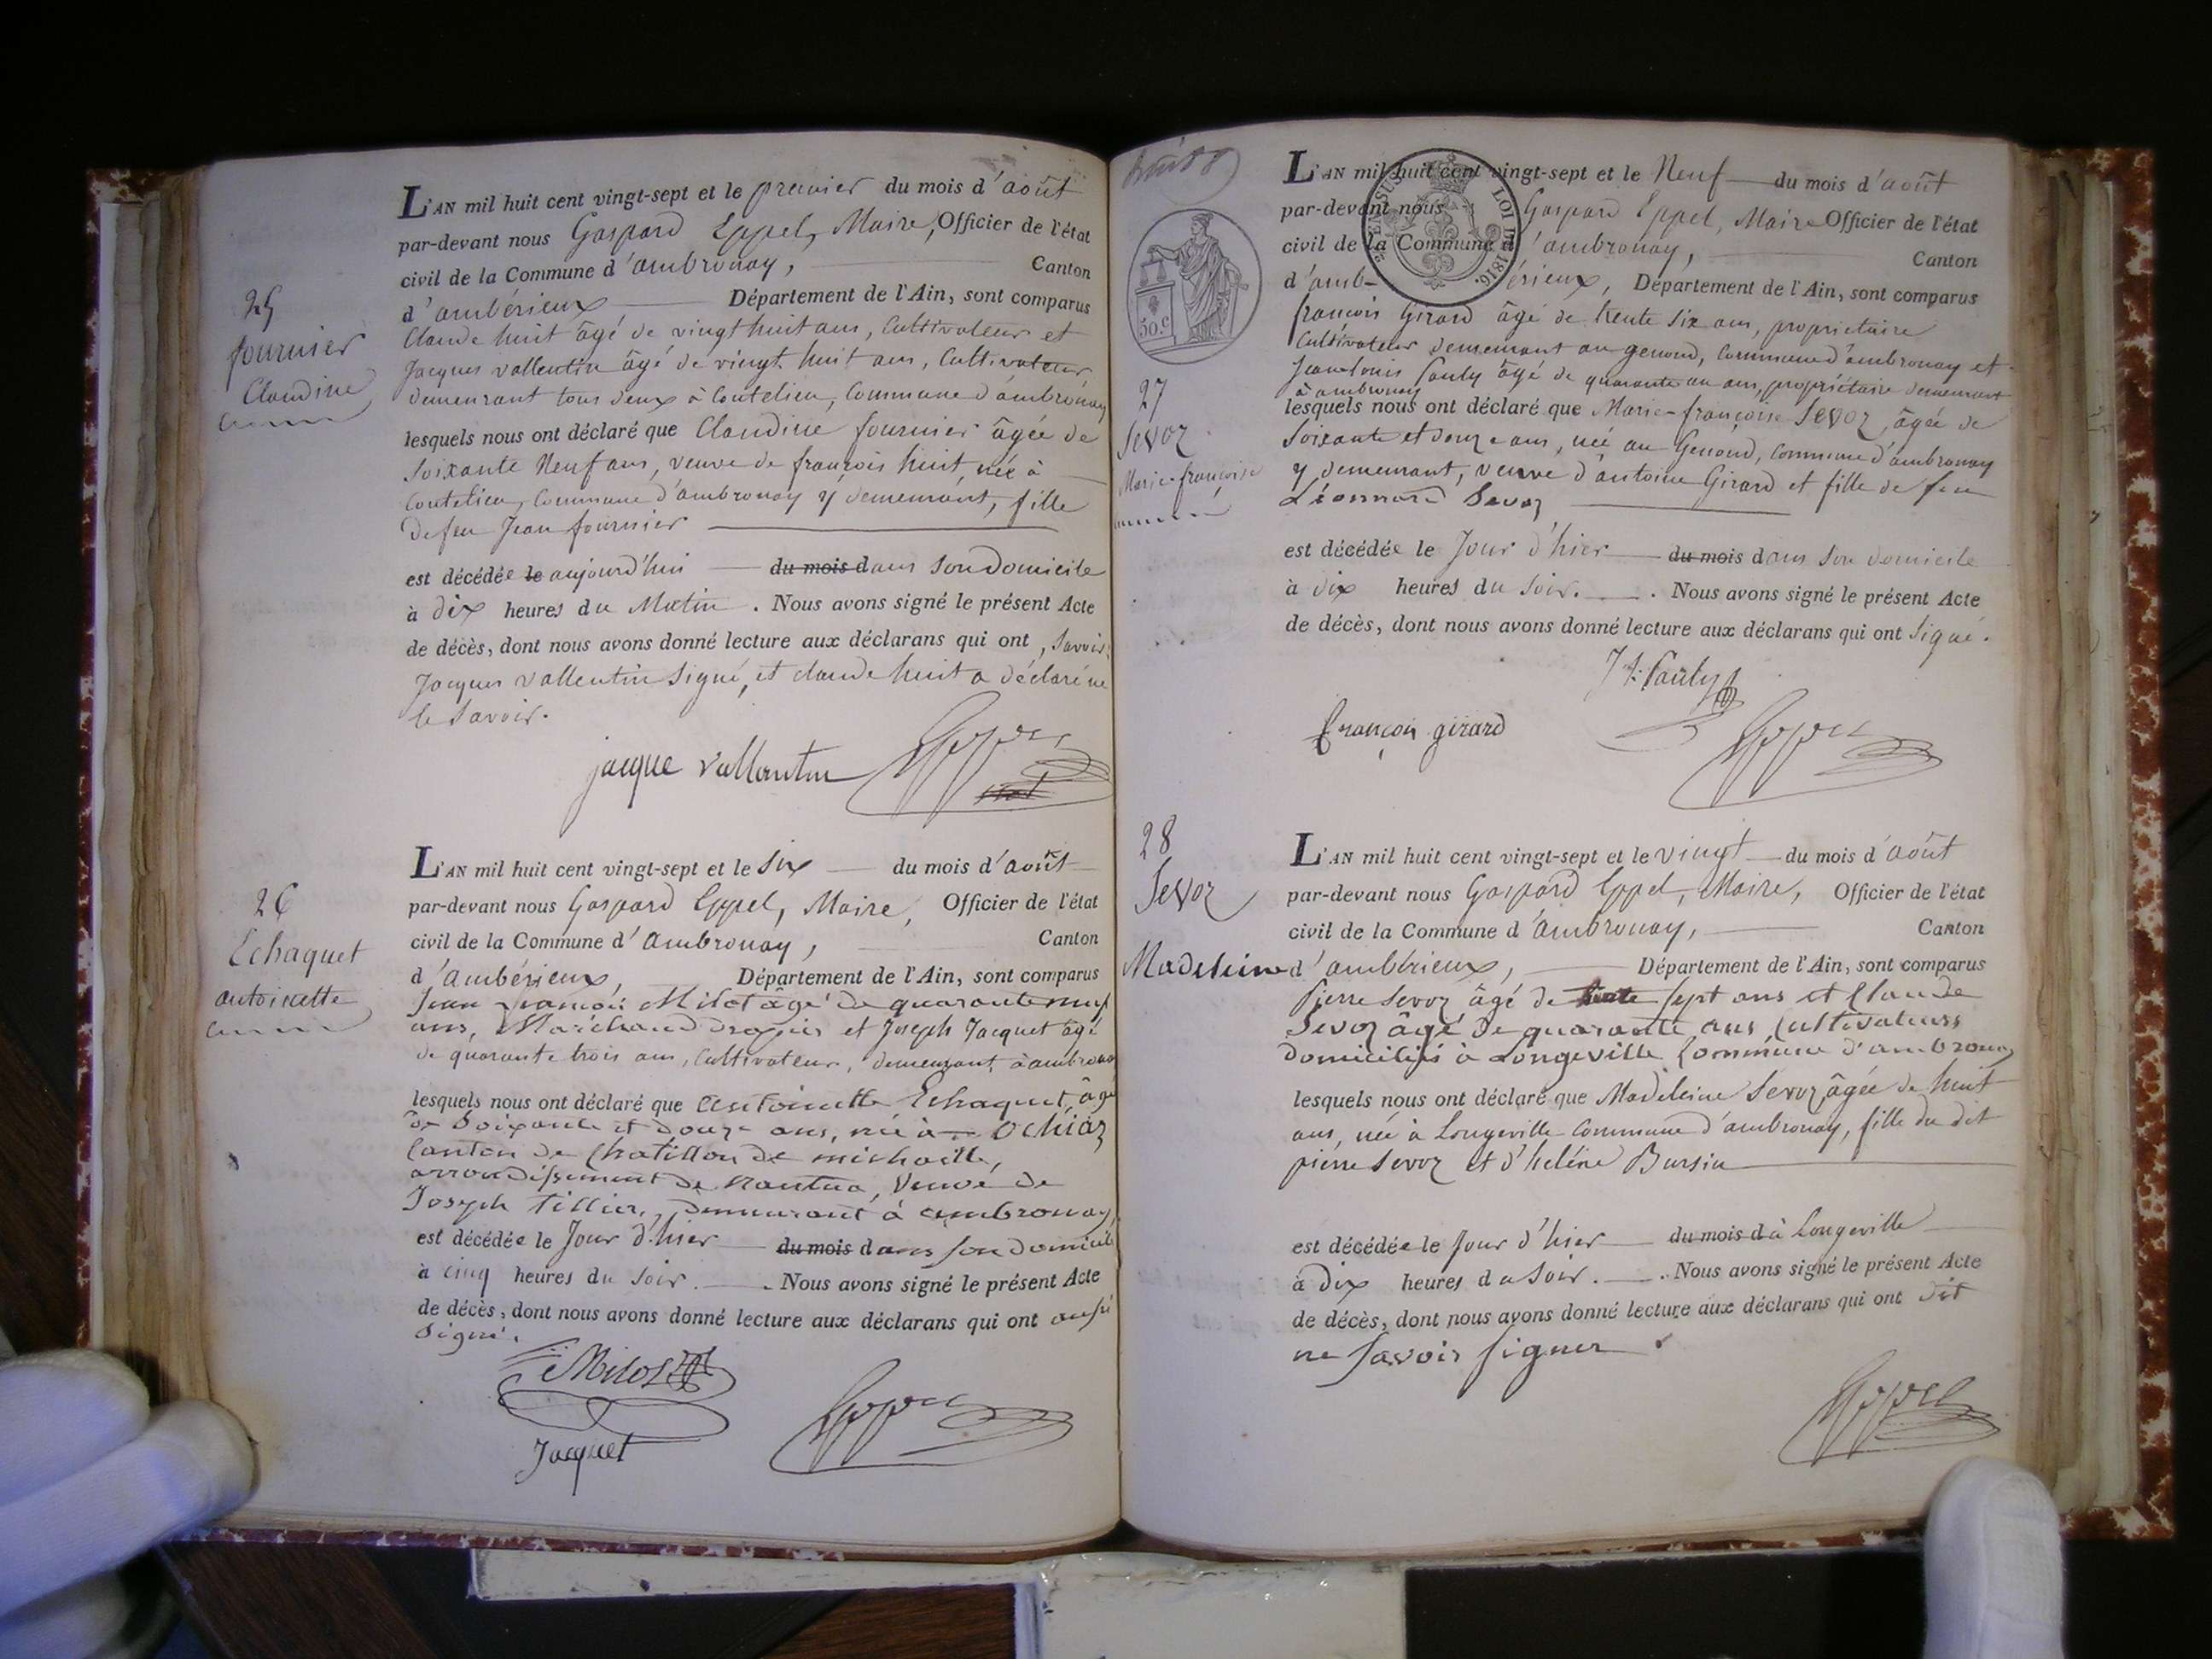 25
fournier
Claudine
L'AN mil huit cent vingt-sept et le premier du mois d'août
par-devant nous Gaspard Eppel, Maire, Officier de l'état
civil de la Commune d'ambronay, Canton
d'ambérieux Département de l'Ain, sont comparus
Claude huit âgé de vingt huit ans, Cultivateur et
Jacques vallentin âgé de vingt huit ans, Cultivateur
demeurant tous deux à Coutelieu, Commune d'ambronay
lesquels nous ont déclaré que Claudine fournier âgée de
Soixante Neuf ans, veuve de françois huit, née à
Coutelieu, Commune d'ambronay y demeurant, fille
de feu Jean fournier
est décédée le aujourd'hui du mois dans son Domicile
à dix heures du Matin. Nous avons signé le présent Acte
de décès, dont nous avons donné lecture aux déclarans qui ont, Savoir:
Jacques vallentin Signé, et claude huit a déclaré ne
le Savoir.
jacque vallantin Eppel
26
Echaquet
antoinette
L'AN mil huit cent vingt-sept et le Six du mois d'août
par-devant nous Gaspard Eppel, Maire, Officier de l'état
civil de la Commune d'Ambronay, Canton
d'ambérieux, Département de l'Ain, sont comparus
Jean Milot âgé de quarante neuf
ans, Marchand drapier et Joseph Jacquet âgé
de quarante trois ans, Cultivateur, demeurant à ambronay
lesquels nous ont déclaré que Antoinette Echaquet, âgé
de Soixante et douze ans, née à Ochiaz
Canton de Chatillon de michaille,
arrondissement de Nantua, Veuve de
Joseph tillier, demeurant à ambronay,
est décédée le Jour d'hier du mois dans son Domicile
à cinq heures du Soir. Nous avons signé le présent Acte
de décès, dont nous avons donné lecture aux déclarans qui ont aussi
Signé.
Milot
Eppel
Jacquet
50.c
LOI DE 1816.
27
Sevoz
Marie-françoise
L'AN mil huit cent vingt-sept et le Neuf du mois d'août
par-devant nous Gaspard Eppel, Maire Officier de l'état
civil de la Commune d'ambronay, Canton
d'amb-érieux, Département de l'Ain, sont comparus
françois Girard âgé de trente Six ans, propriétaire
Cultivateur demeurant au genoud, Commune d'ambronay et
Jean-louis Pauly âgé de quarante un ans, propriétaire demeurant
à ambronay
lesquels nous ont déclaré que Marie-françoise Sevoz, âgée de
Soixante et douze ans, née au Genoud, Commune d'ambronay
y demeurant, veuve d'antoine Girard et fille de feu
Léonnard Sevoz
est décédée le Jour d'hier du mois dans Son domicile
à dix heures du Soir. Nous avons signé le présent Acte
de décès, dont nous avons donné lecture aux déclarans qui ont Signé.
J L Pauly
françois girard Eppel
28
Sevoz
Madeleine
L'AN mil huit cent vingt-sept et le vingt du mois d'août
par-devant nous Gaspard Eppel, Maire, Officier de l'état
civil de la Commune d'ambronay, Canton
d'ambérieux, Département de l'Ain, sont comparus
Pierre Sevoz âgé de trente sept ans et Claude
Sevoz âgé de quarante ans Cultivateurs
domiciliés à Longeville Commune d'ambronay
lesquels nous ont déclaré que Madeleine Sevoz, âgée de huit
ans, née à Longeville Commune d'ambronay, fille du dit
pierre Sevoz et d'helène Bursin
est décédée le Jour d'hier du mois d à Longeville
à dix heures du Soir. Nous avons signé le présent Acte
de décès, dont nous avons donné lecture aux déclarans qui ont dit
ne Savoir signer.
Eppel